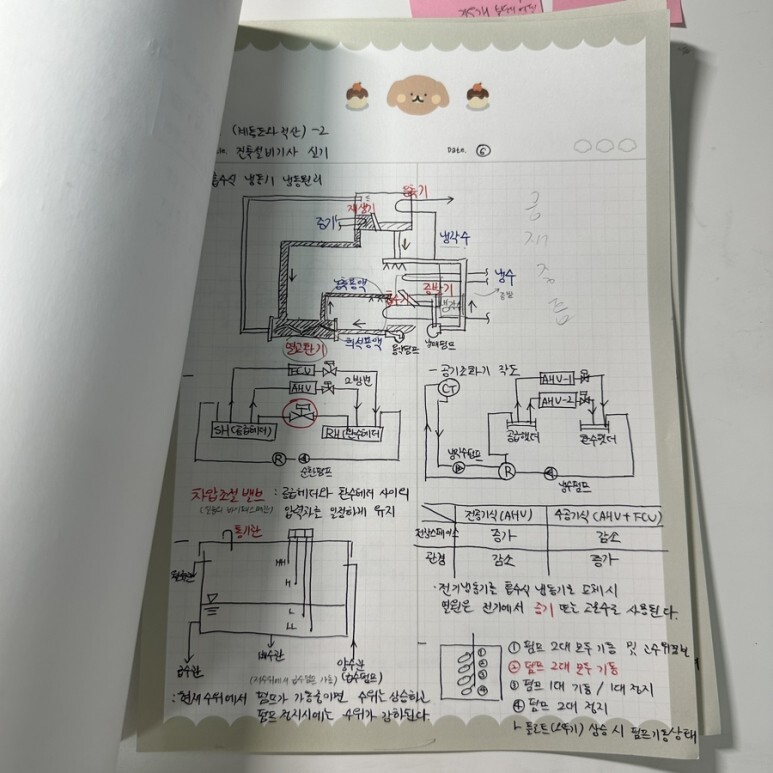 (계통도와 적산) -2
건축설비기사 실기
Date. ⑥
흡수식 냉동기 냉동원리
응축기
재생기
증기
냉각수
농축용액
흡수기
증발기
냉수
열교환기
희석용액
용액펌프
냉매펌프
FCU
AHU
2방변
SH(공급헤더)
RH(환수헤더)
R
순환펌프
차압조절밸브 : 공급헤더와 환수헤더 사이의
압력차를 일정하게 유지
- 공기조화기 각도
CT
AHU-1
AHU-2
공급헷더
환수헷더
냉각수펌프
R
냉수펌프
전공기식(AHU) 수공기식(AHU+FCU)
천장스페이스 증가 감소
관경 감소 증가
· 전기냉동기를 흡수식 냉동기로 교체시
열원은 전기에서 증기 또는 고온수로 사용된다.
통기관
HH
H
L
LL
급수관
배수관
양수관
(급수펌프)
: 현재 수위에서 펌프가 가동중이면 수위는 상승하고
펌프 정지시에는 수위가 감하된다.
① 펌프 2대 모두 기동 및 고수위경보
② 펌프 2대 모두 기동
③ 펌프 1대 기동 / 1대 정지
④ 펌프 2대 정지
상승 시 펌프기동상태